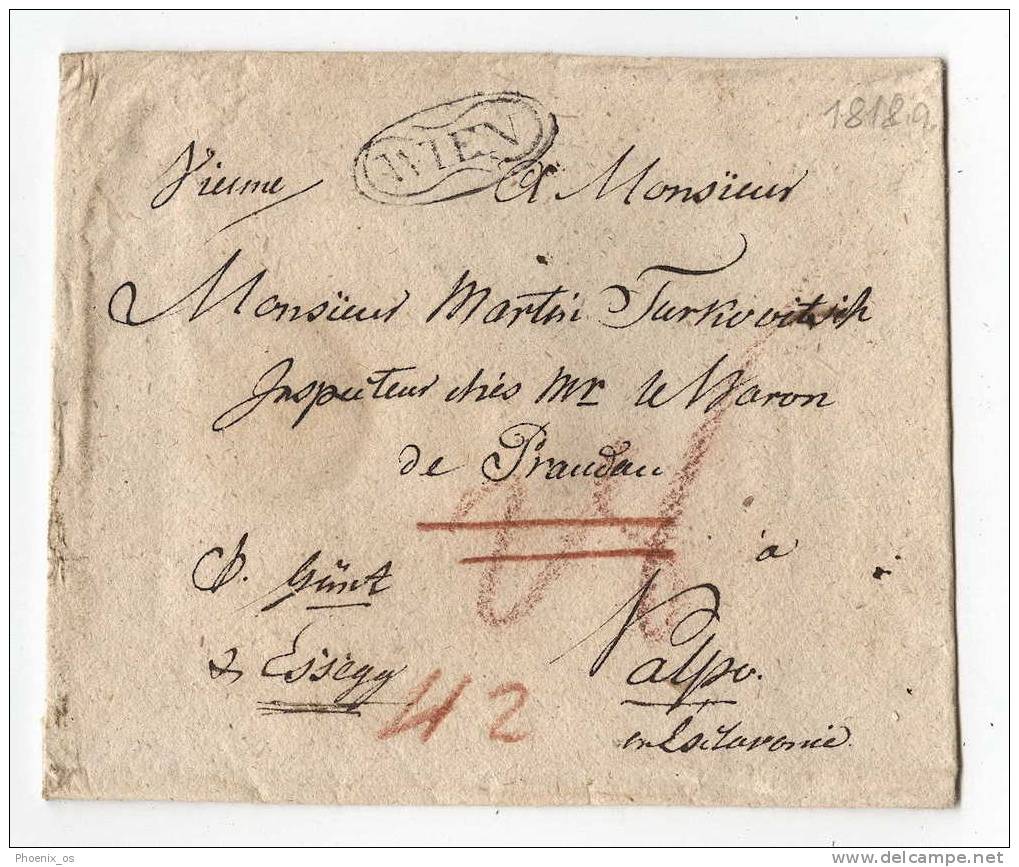 1818 9.
WIEN
Vienne
A Monsïeur
Monsïeur Martin Turkovitsch
Inspecteur chés Mr le Baron
de Prandau
à
p. Günz
& Essegg
Valpo.
en Esclavonie
42
Phoenix_os
delcampe.net